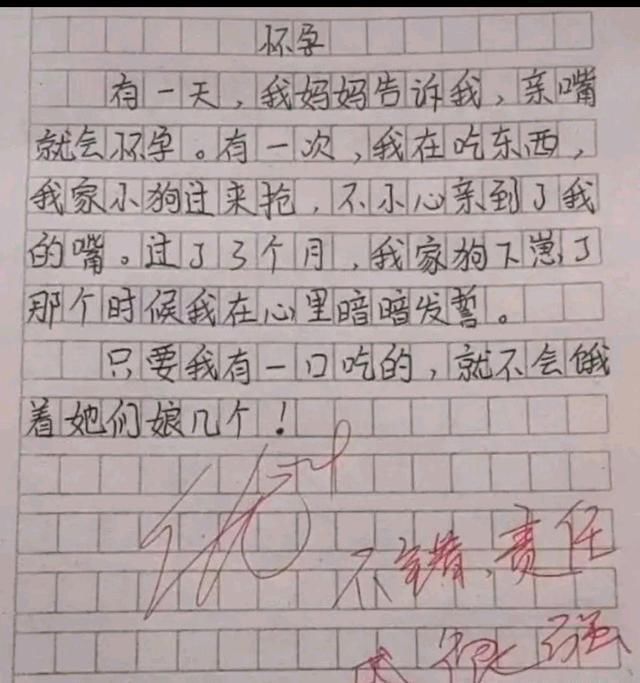 怀孕
有一天，我妈妈告诉我，亲嘴
就会怀孕。有一次，我在吃东西，
我家小狗过来抢，不小心亲到了我
的嘴。过了3个月，我家狗下崽了
那个时候我在心里暗暗发誓。
只要我有一口吃的，就不会饿
着她们娘几个！
不错，责任
很强